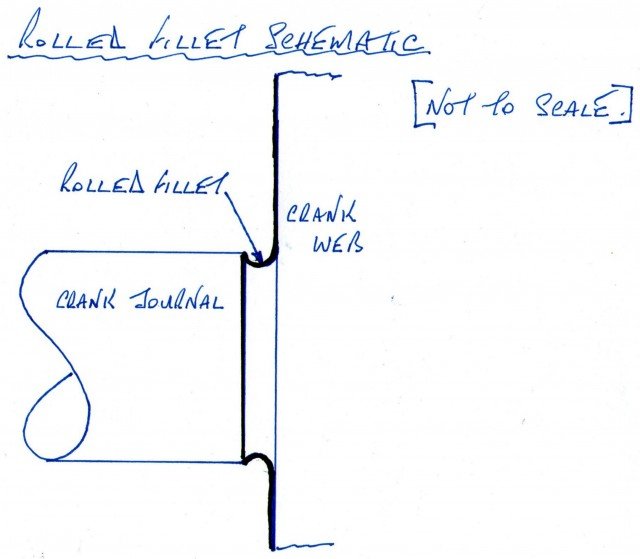 ROLLED FILLET SCHEMATIC
[NOT TO SCALE.]
ROLLED FILLET
CRANK
WEB
CRANK JOURNAL